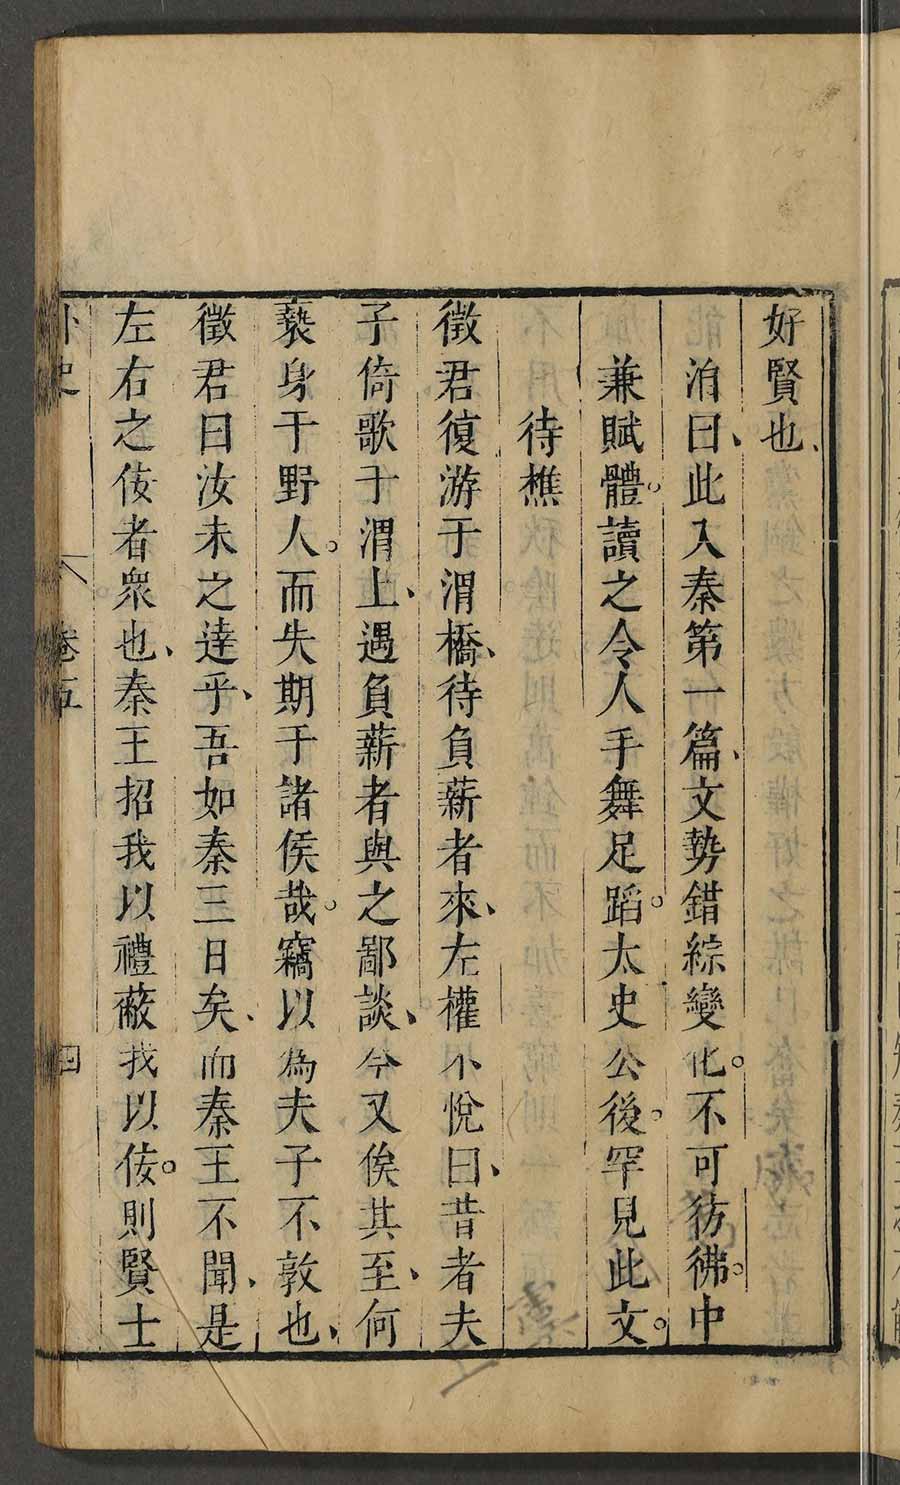 好賢也、
洧曰、此入秦第一篇、文勢錯綜變化。不可彷彿。中
兼賦體。讀之令人手舞足蹈。太史公後。罕見此文。
待樵
徵君復游于渭橋、待負薪者來、左權不悅曰、昔者夫
子倚歌于渭上、遇負薪者與之鄙談、今又俟其至、何
褻身于野人。而失期于諸侯哉。竊以為夫子不敦也、
徵君曰汝未之達乎、吾如秦三日矣、而秦王不聞、是
左右之佞者衆也、秦王招我以禮蔽我以佞。則賢士
外史 卷五 四